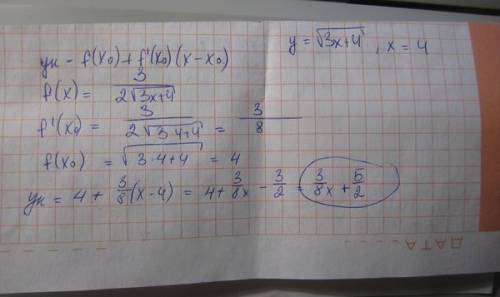 y = √(3x+4) , x = 4
yк - f(x₀) + f'(x₀) (x - x₀)
f(x) = 3/(2√(3x+4))
f'(x₀) = 3/(2√(3·4+4)) = 3/8
f(x₀) = √(3·4+4) = 4
yк = 4 + 3/8(x-4) = 4 + 3/8x - 3/2 = 3/8x + 5/2
ДАТА